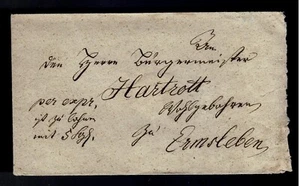 An
den Herrn Bürgermeister
Hartrott
Wohlgeboren
per expr.
ist zu lohnen
mit 5
zu
Ermsleben